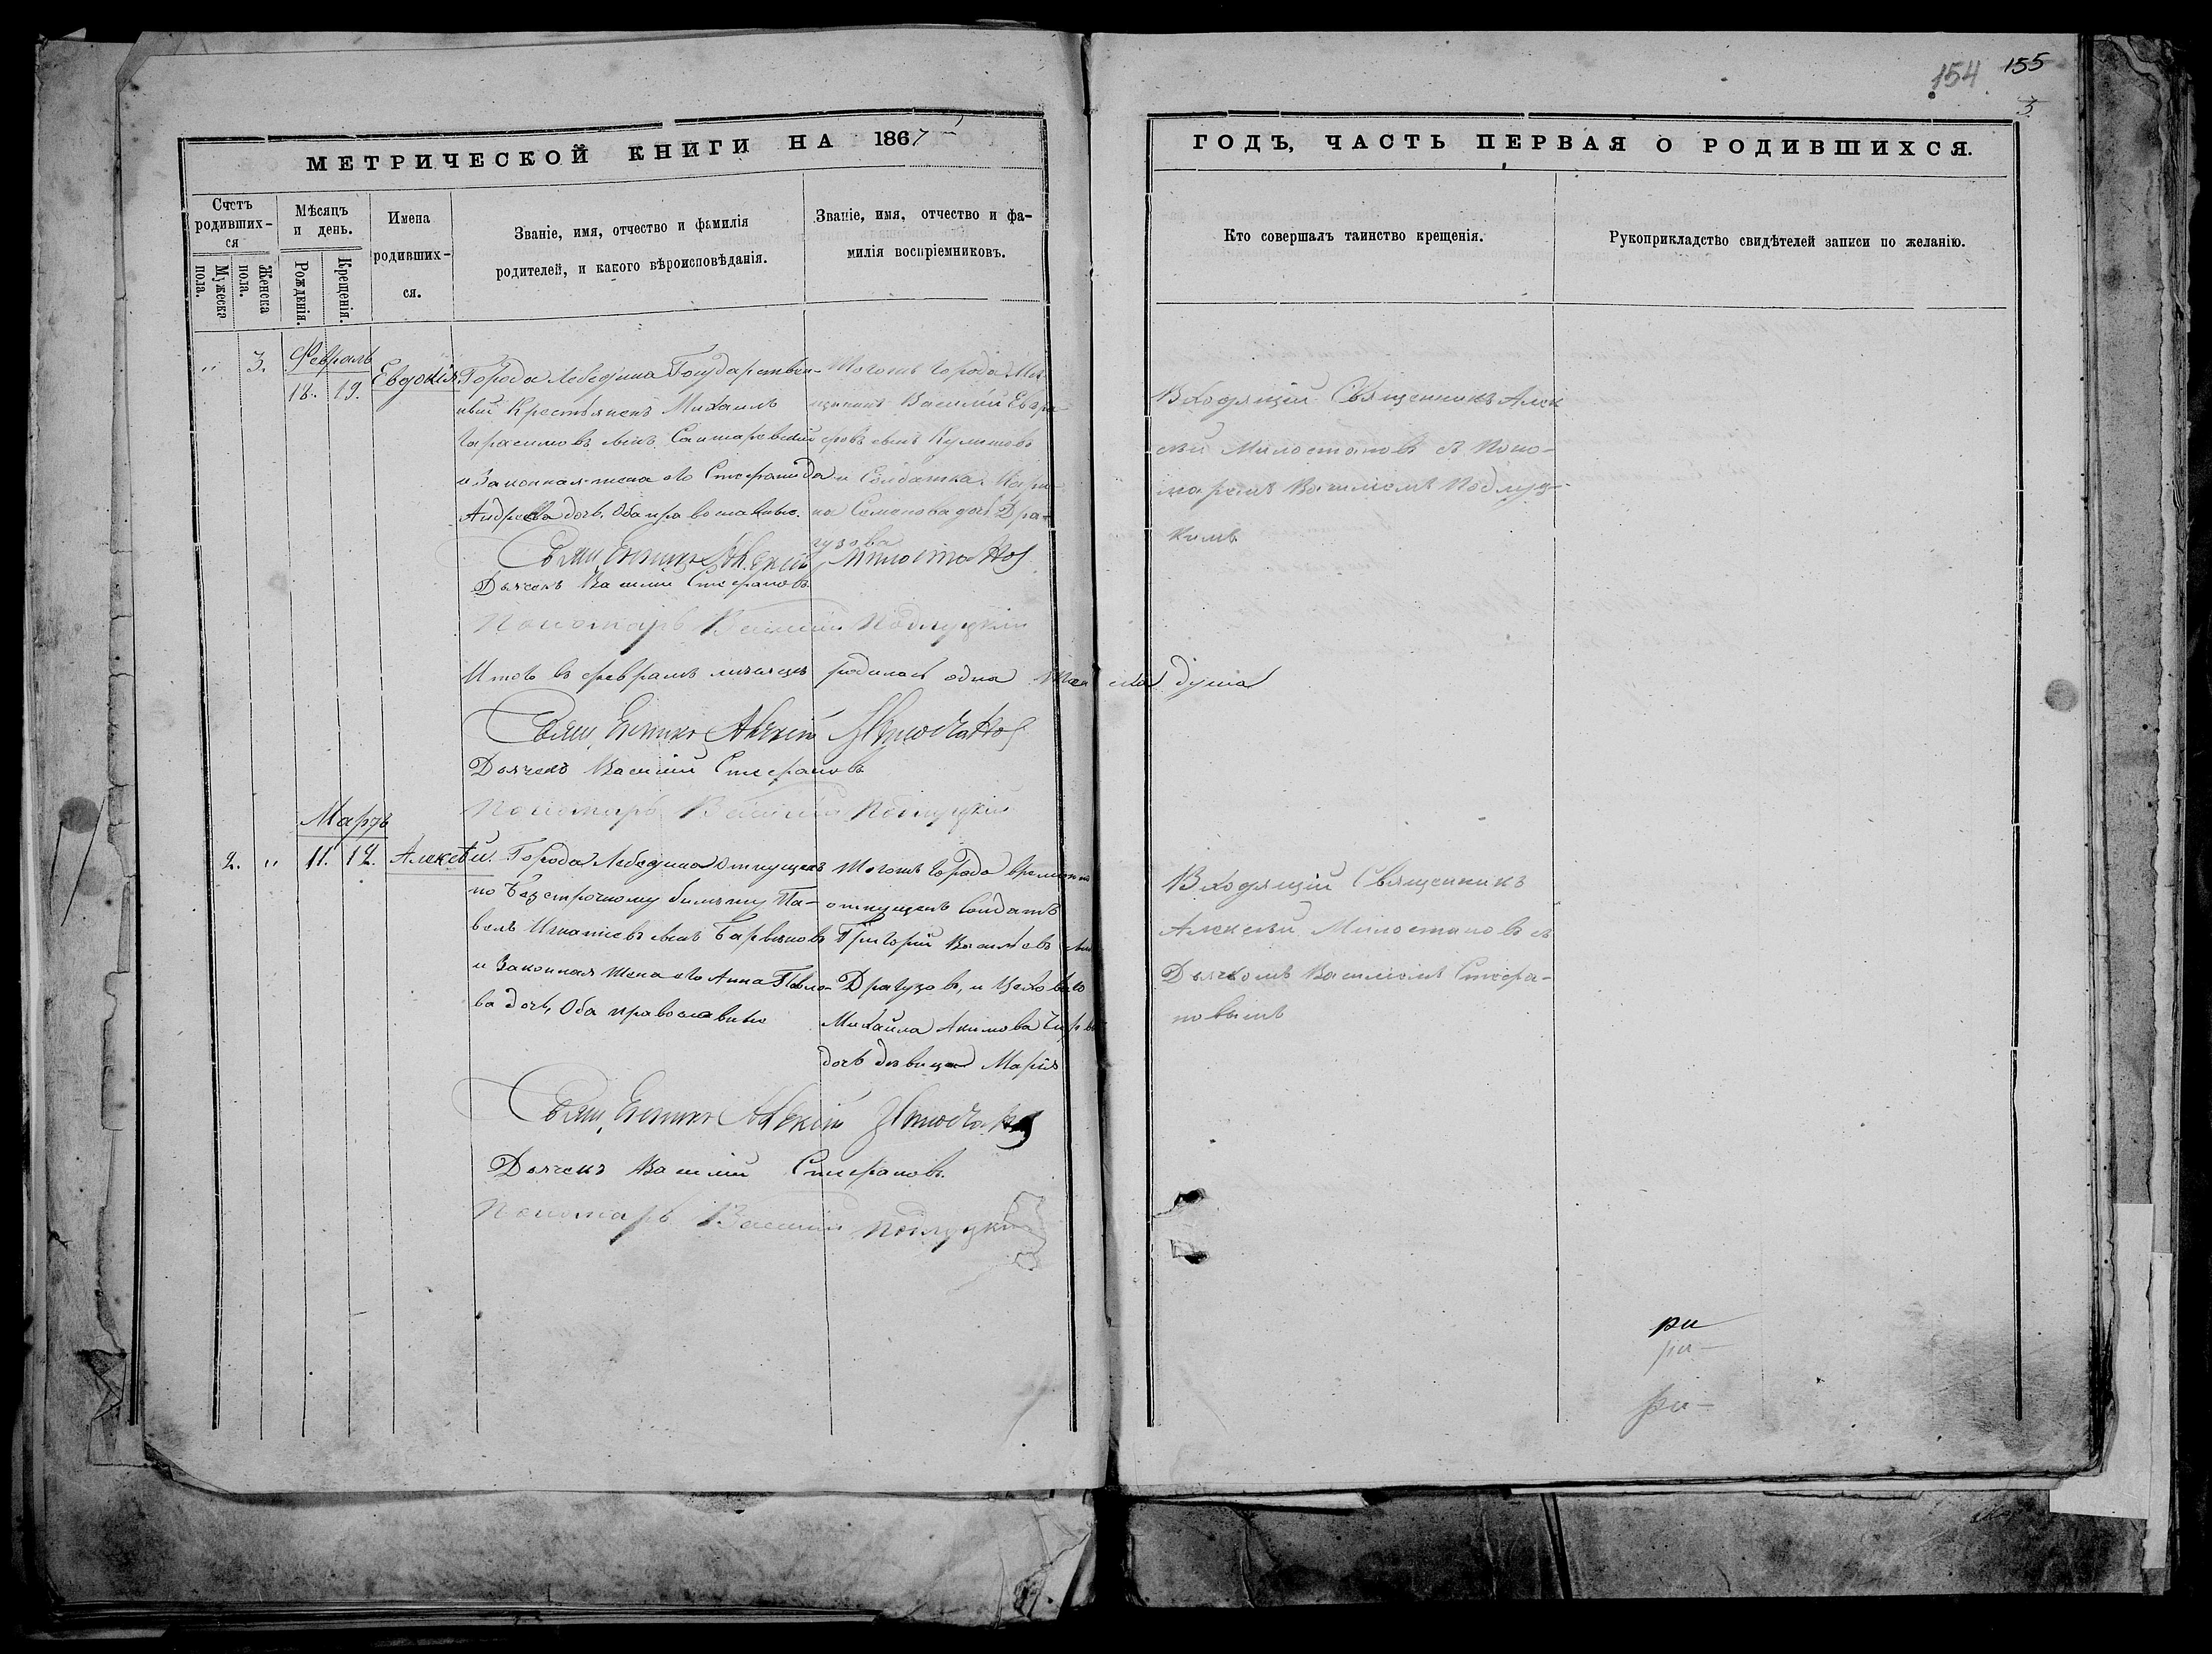 154 155
3
МЕТРИЧЕСКОЙ КНИГИ НА 1867
ГОДЪ, ЧАСТЬ ПЕРВАЯ О РОДИВШИХСЯ.
Счетъ родивших-ся
Мужеска пола.
Женска пола.
Мѣсяцъ и день.
Рожденія.
Крещенія.
Имена родивших-ся.
Званіе, имя, отчество и фамилія
родителей, и какого вѣроисповѣданія.
Званіе, имя, отчество и фа-
милія воспріемниковъ.
Кто совершалъ таинство крещенія.
Рукоприкладство свидѣтелей записи по желанію.
" 3. Февраль
18. 19. Евдокія
Города Лебедина Государствен-
ный Крестьянинъ Михаилъ
Гарасимовъ сынъ
и Законная жена его Стефанида
Андреева дочь, Оба православные.
Тогожъ города Мѣ-
щанинъ Василій
сынъ Кулишовъ
и Солдатка
на Семенова дочь Дра-
гузова
Входящій Священникъ Алек
сѣй Милостановъ съ Поно-
маремъ Василіемъ Подлуц-
кимъ
Священникъ Алексій Милостановъ
Дьячекъ Василій Стефановъ
Пономарь Василій Подлуцкій
Итогъ въ февралѣ мѣсяцѣ родилась одна женска душа
Священникъ Алексій Милостановъ
Дьячекъ Василій Стефановъ
Пономарь Василій Подлуцкій
Мартъ
2. " 11. 12. Алексѣй
Города Лебедина отпущенъ
по Безсрочному билету Па-
велъ Игнатіевъ сынъ
и Законная жена его Анна Павло-
ва дочь, Оба православные
Тогожъ Города временно
отпущенъ Солдатъ
Григорій Васильевъ сынъ
Драгузовъ, и
Михаила Акимова
дочь дѣвица Марія
Входящій Священникъ
Алексѣй Милостановъ съ
Дьячкомъ Василіемъ Стефа-
новымъ
Священникъ Алексій Милостановъ
Дьячекъ Василій Стефановъ.
Пономарь Василій Подлуцкій
ри
ри-
ри-